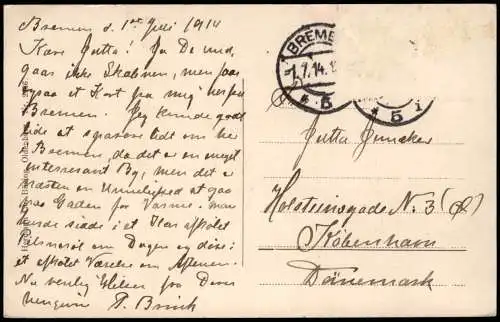 Bremen d. 1ste Juli 1914
Kære Jutta! Ja De und-
gaar ikke Skæbnen, men faar
ogsaa et Kort fra mig herfra
Bremen. Jeg kunde godt
lide at spasere lidt om her i
Bremen, da det er en meget
interessant By, men det er
næsten en Umulighed at gaa
paa Gaden for Varme. Man
kunde sidde i et Kar afkølet
Pilsnerøl om Dagen og dase i
et afkølet Værelse om Aftenen.
Nu venlig Hilsen fra Deres
hengivne P. Brink
BREMEN
1.7.14.
* 5 i
Jutta Juncker
Holsteinsgade Nr. 3 (Ø)
København
Dänemark